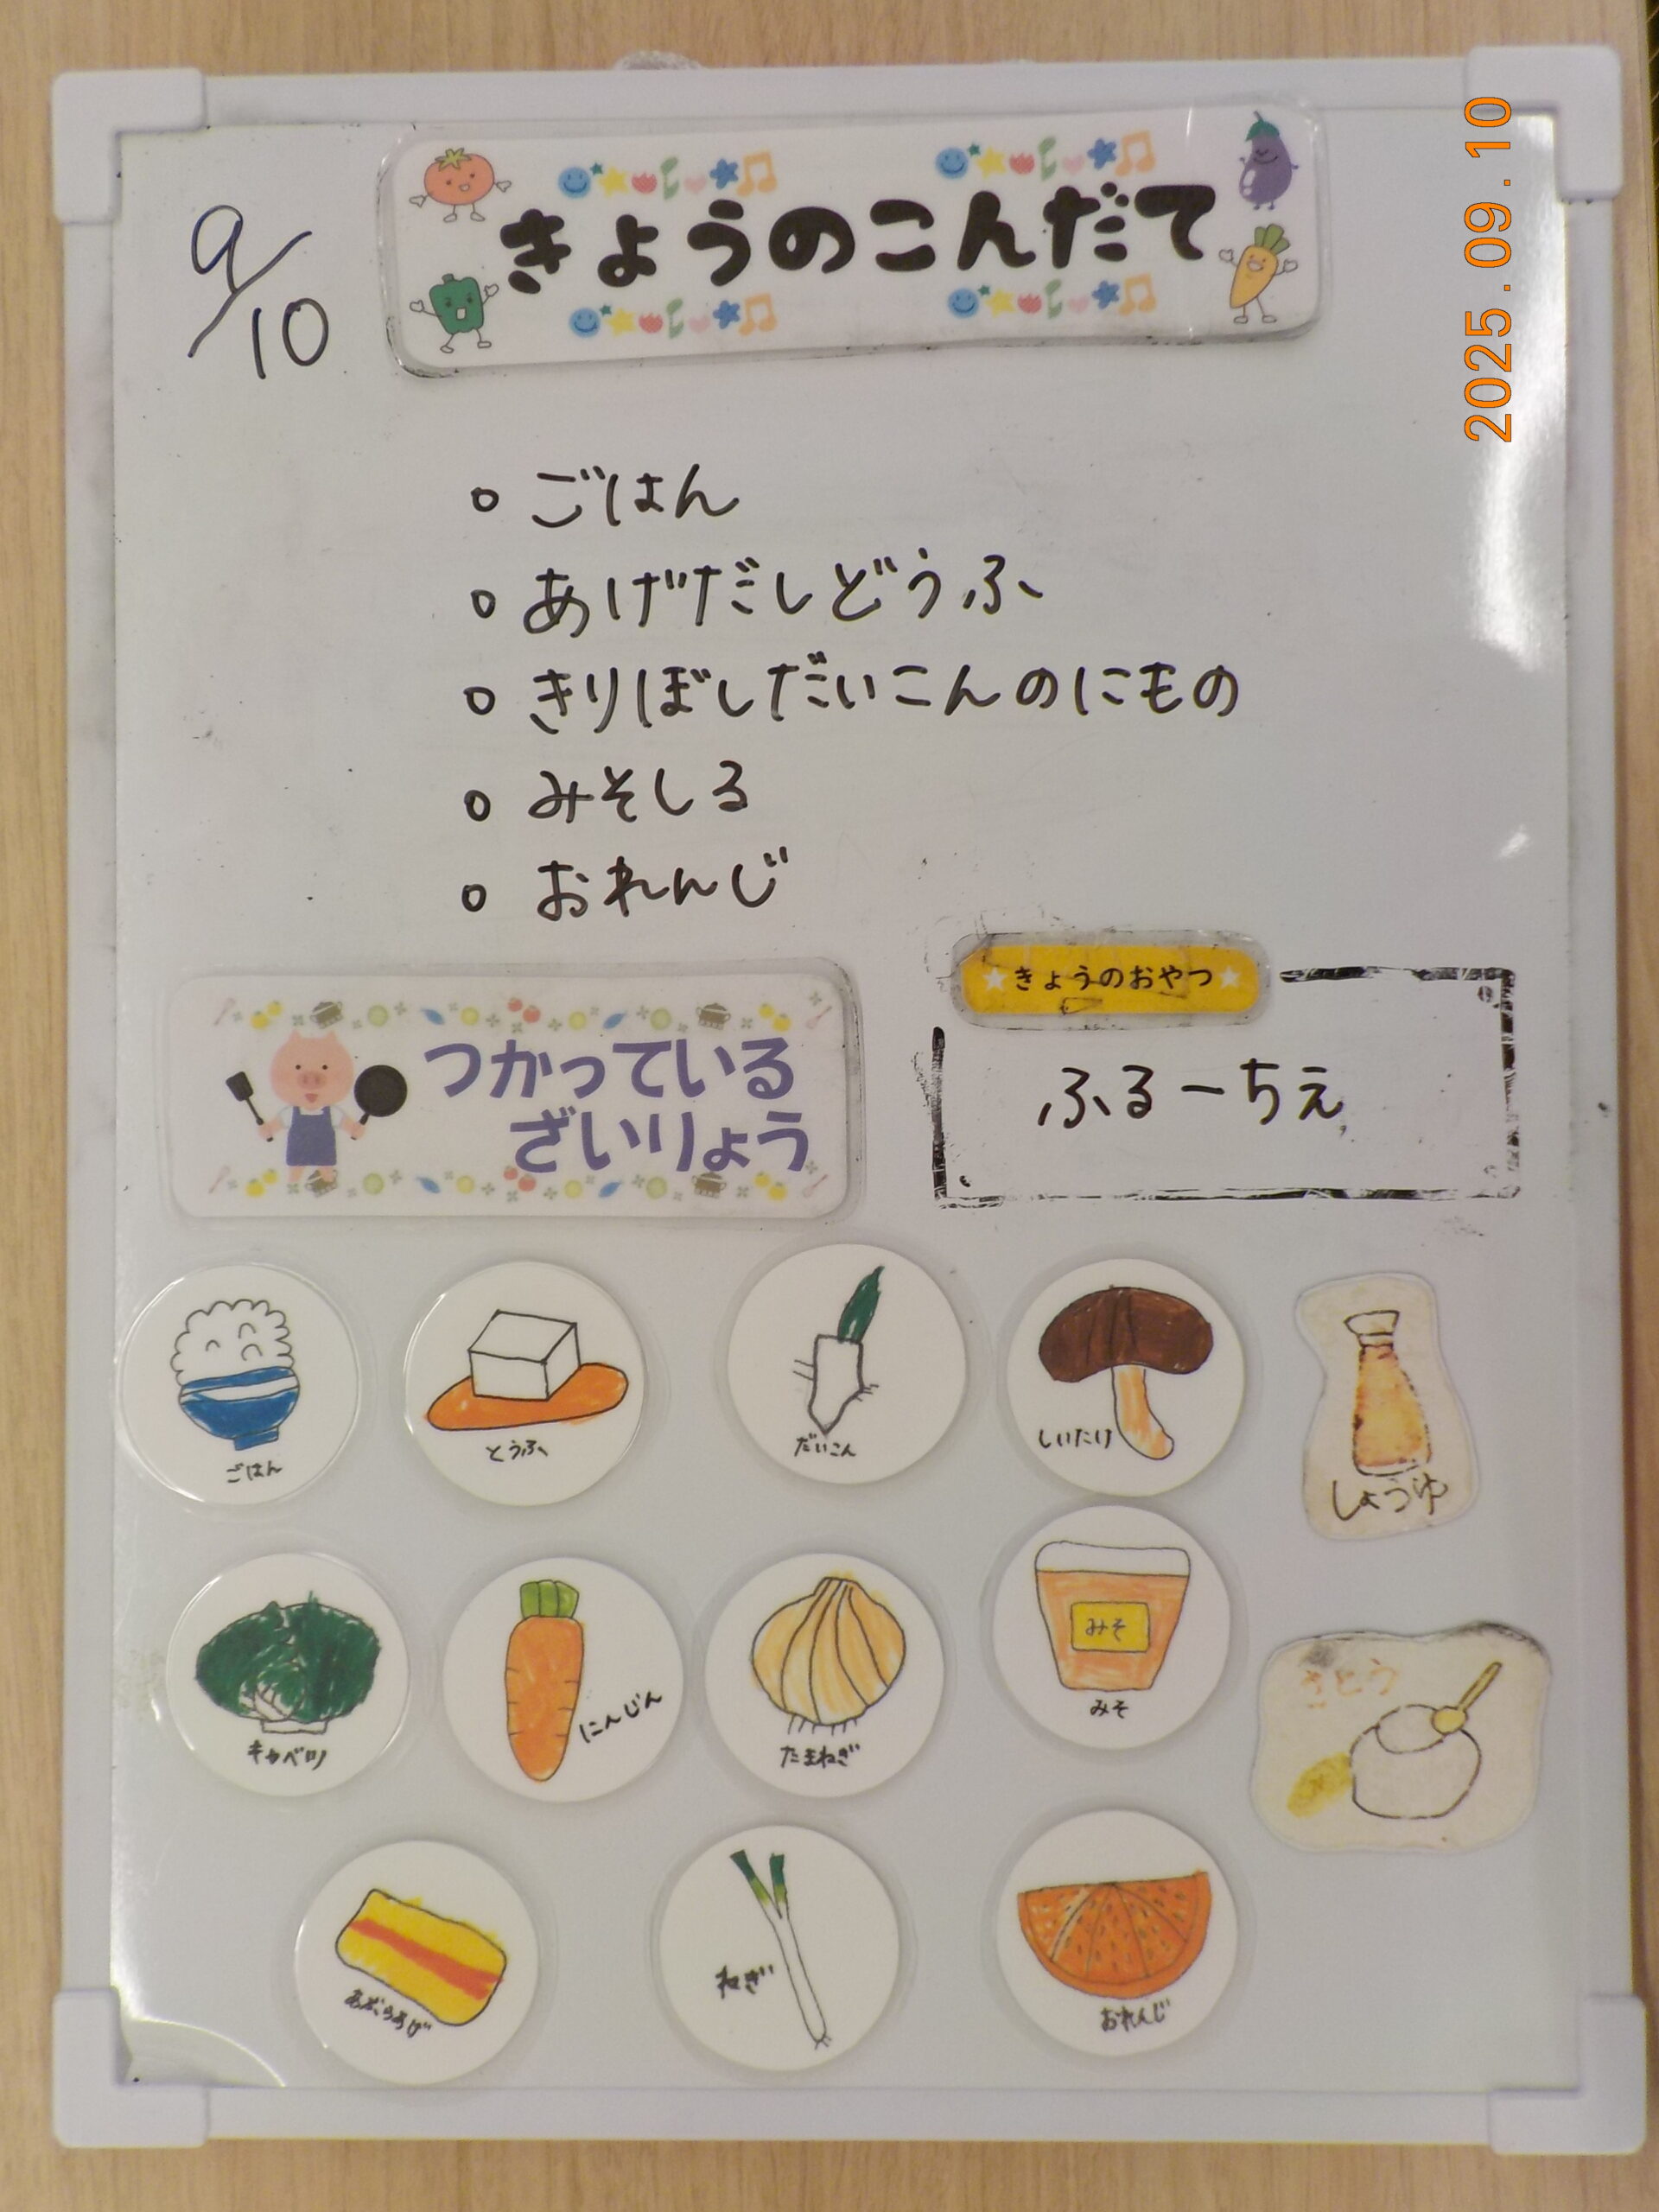 きょうのこんだて
9/10
2025.09.10
○ ごはん
○ あげだしどうふ
○ きりぼしだいこんのにもの
○ みそしる
○ おれんじ
★きょうのおやつ★
ふるーちぇ
つかっている
ざいりょう
ごはん
とうふ
だいこん
しいたけ
しょうゆ
キャベツ
にんじん
たまねぎ
みそ
みそ
さとう
あぶらあげ
ねぎ
おれんじ